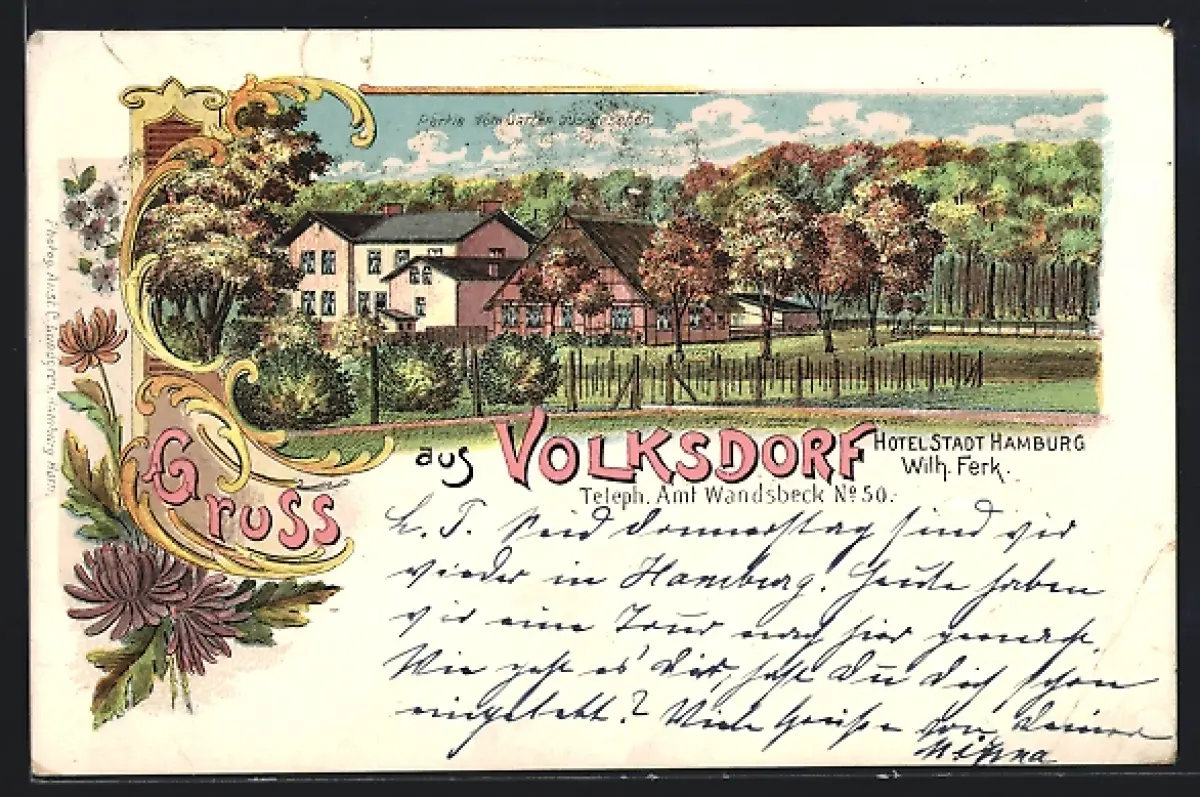 Partie vom Garten aus gesehen.
Gruss
aus VOLKSDORF
HOTEL STADT HAMBURG
Wilh. Ferk.
Teleph. Amt Wandsbeck No 50.
L. T. Seid Donnerstag sind wir
wieder in Hamburg. Heute haben
wir eine Tour nach hier gemacht.
Wie geht es Dir, hast Du Dich schon
eingelebt? Viele Grüße von Deiner